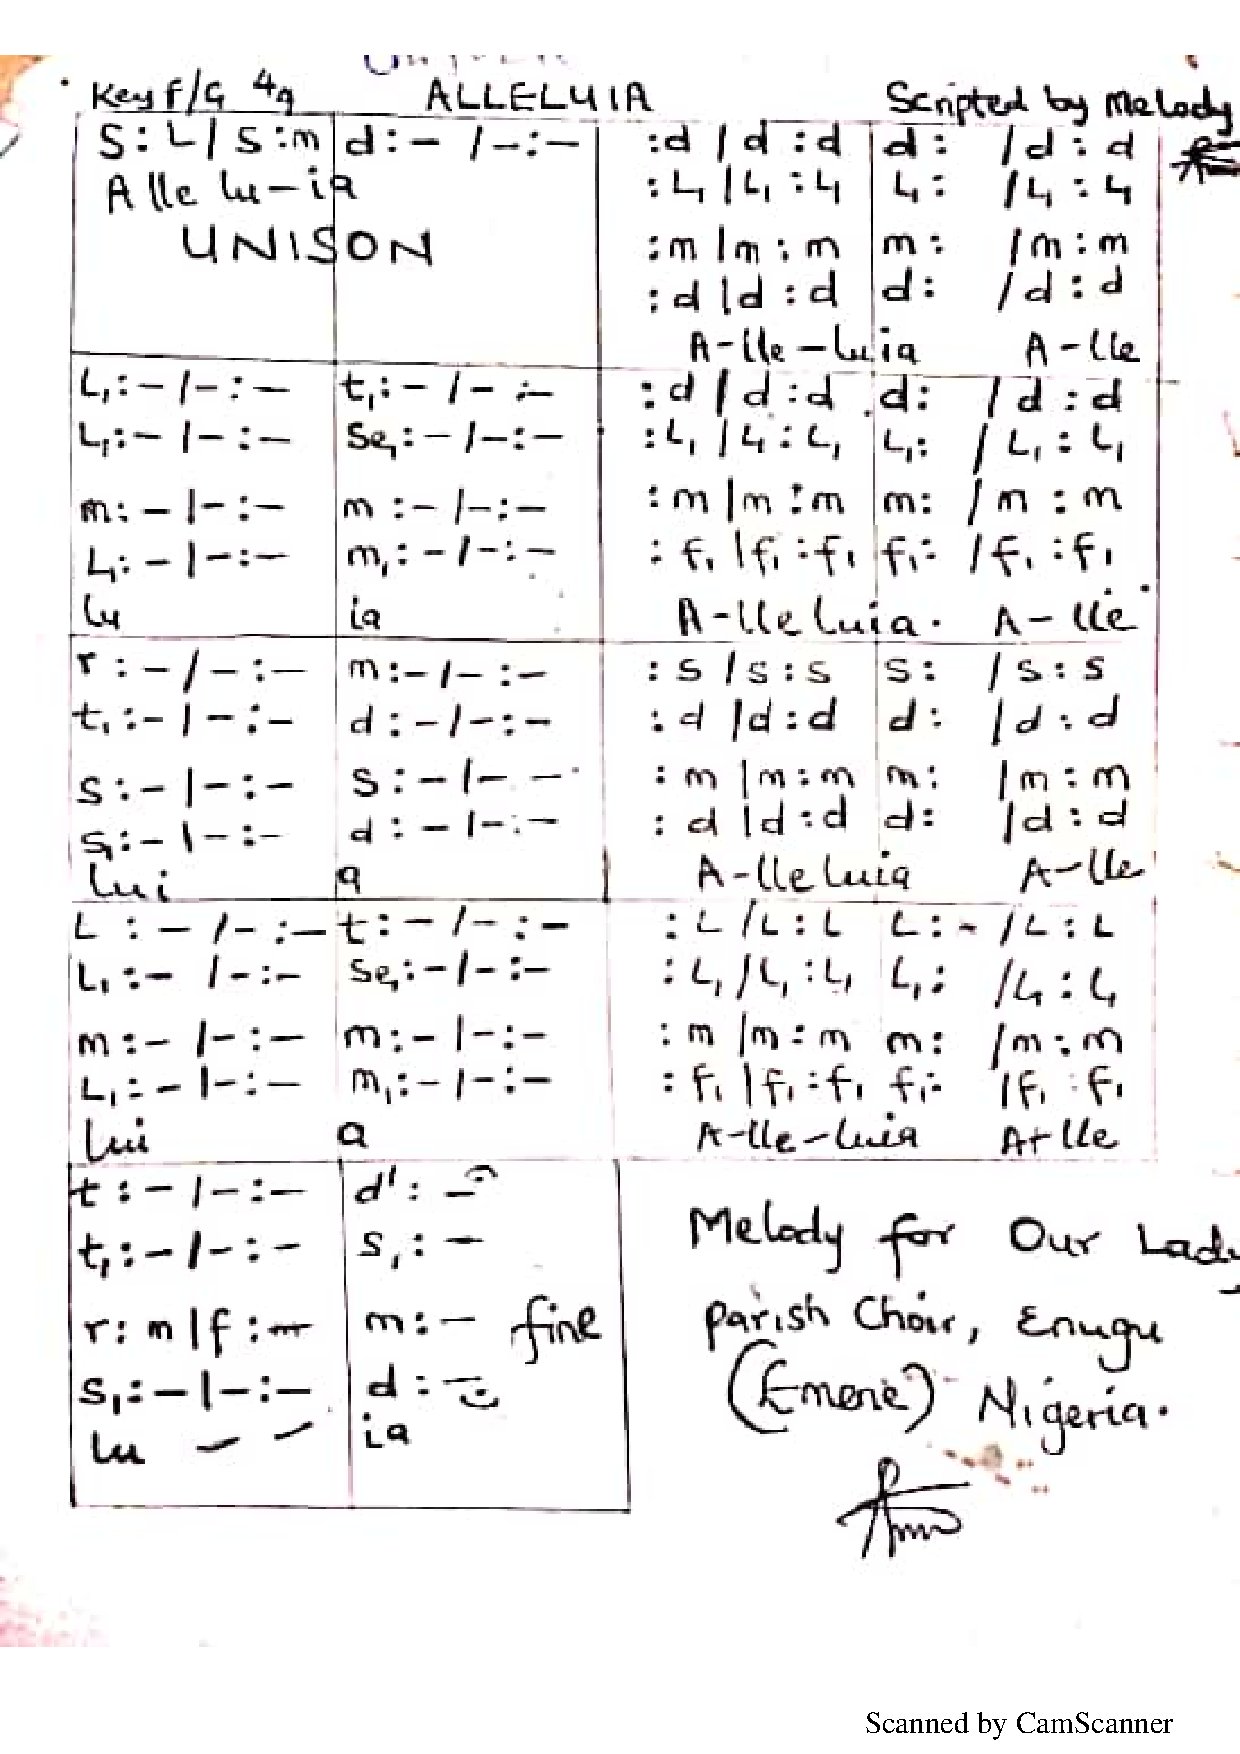 Key F/G 4/4 ALLELUIA Scripted by Melody
S : L / S : m d : - / - : - : d / d : d d : / d : d
Alle lu-ia : L₁ / L₁ : L₁ L₁ : / L₁ : L₁
UNISON : m / m : m m : / m : m
: d / d : d d : / d : d
A-lle-luia A-lle
L₁ : - / - : - t₁ : - / - : - : d / d : d d : / d : d
L₁ : - / - : - se₁ : - / - : - : L₁ / L₁ : L₁ L₁ : / L₁ : L₁
m : - / - : - m : - / - : - : m / m : m m : / m : m
L₁ : - / - : - m₁ : - / - : - : f₁ / f₁ : f₁ f₁ : / f₁ : f₁
lu ia A-lle luia. A-lle
r : - / - : - m : - / - : - : s / s : s s : / s : s
t₁ : - / - : - d : - / - : - : d / d : d d : / d : d
s : - / - : - s : - / - - : m / m : m m : / m : m
s₁ : - / - : - d : - / - : - : d / d : d d : / d : d
lui a A-lle luia A-lle
L : - / - : - t : - / - : - : L / L : L L : - / L : L
L₁ : - / - : - se₁ : - / - : - : L₁ / L₁ : L₁ L₁ : / L₁ : L₁
m : - / - : - m : - / - : - : m / m : m m : / m : m
L₁ : - / - : - m₁ : - / - : - : f₁ / f₁ : f₁ f₁ : / f₁ : f₁
lui a A-lle-luia A-lle
t : - / - : - d' : -
t₁ : - / - : - s₁ : -
r : m / f : - m : - fine
s₁ : - / - : - d : -
lu - - ia
Melody for Our Lady
Parish Choir, Enugu
(Emene) Nigeria.
Scanned by CamScanner